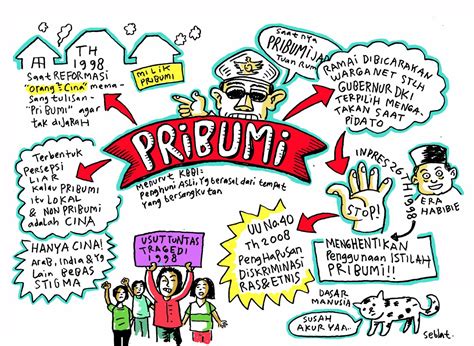 TH 1998
Saat REFORMASI
"orang = Cina" mema-
sang tulisan -
"PriBUMI" agar
tak diJARAH
MILIK
PRIBUMI
Saatnya
PRIBUMI JA
Tuan Rum
RAMAI DIBICARAKAN
WARGANET STLH
GUBERNUR DKI
TERPILIH MENGA-
TAKAN SAAT
PIDATO
PRIBUMI
Menurut KBBI:
Penghuni ASLI, Yg berasal dari tempat
yang bersangkutan
Terbentuk
Persepsi
LIAR
Kalau PRIBUMI
itu LOKAL
& NON PRIBUMI
adalah CINA
HANYA CINA!
ARAB, India & Yg
Lain BEBAS
STIGMA
USUT TUNTAS
TRAGEDI
1998
UU No 40
Th 2008
PengHapusan
DISKRIMINASI
RAS & ETNIS
INPRES 26 TH 1998
STOP!
ERA
HABIBIE
MENGHENTIKAN
Penggunaan ISTILAH
PRIBUMI!!
DASAR
MANUSIA
SUSAH
AKUR YAA..
seblat.